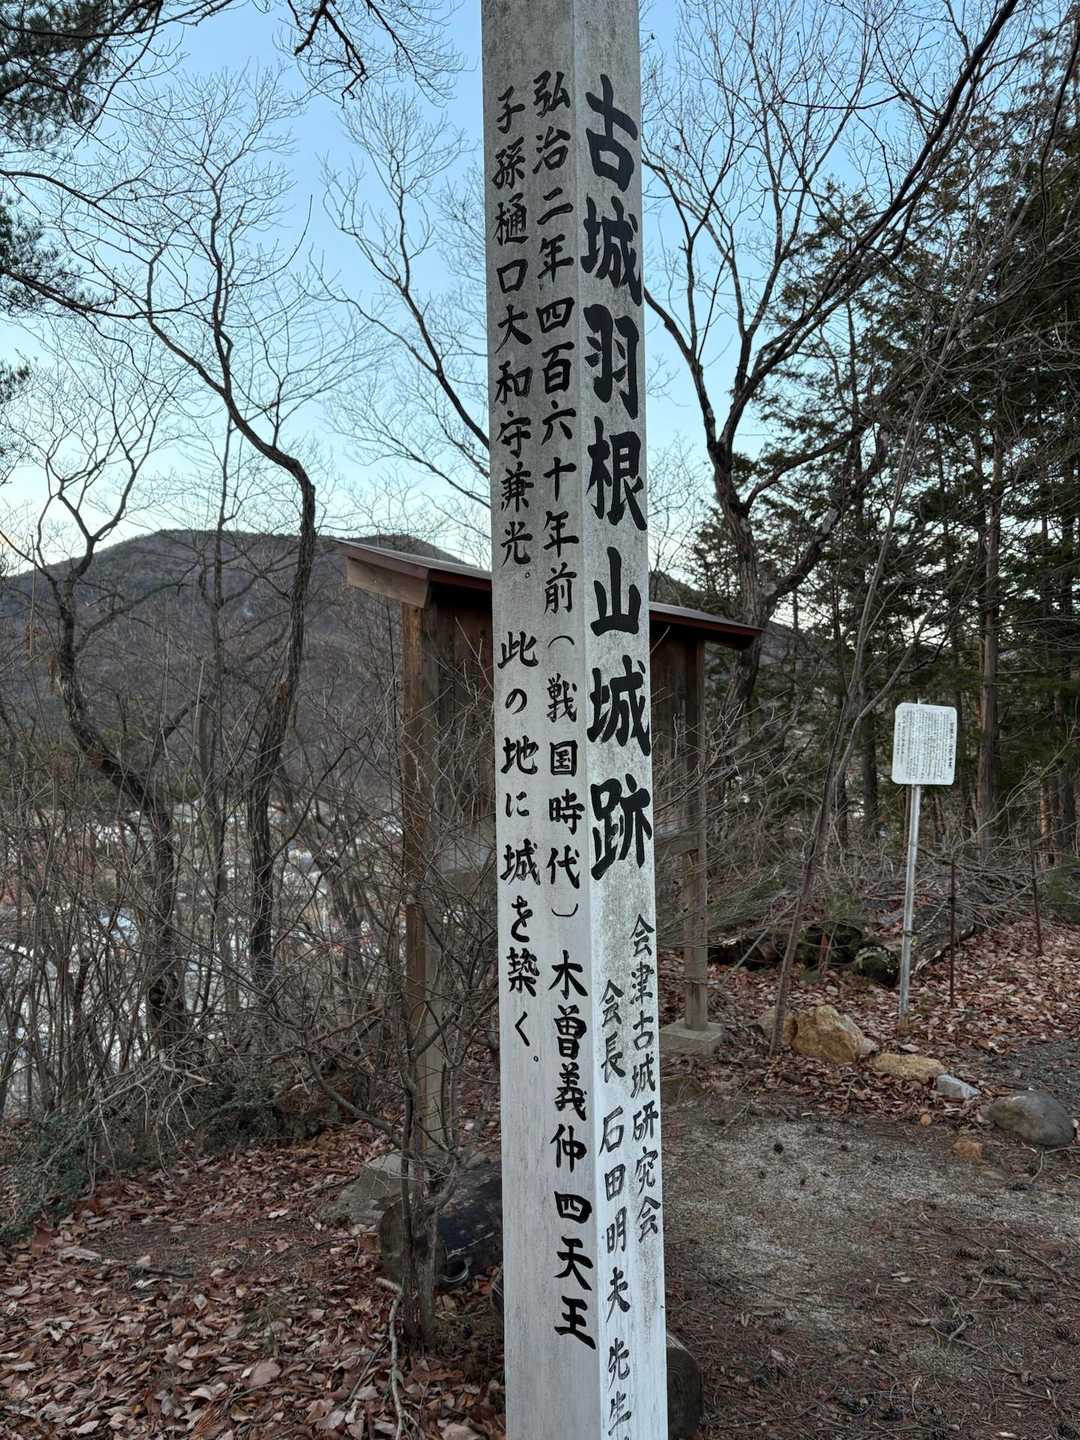 古城羽根山城跡
会津古城研究会
会長 石田明夫先生
弘治二年四百六十年前（戦国時代）木曽義仲四天王
子孫樋口大和守兼光。此の地に城を築く。